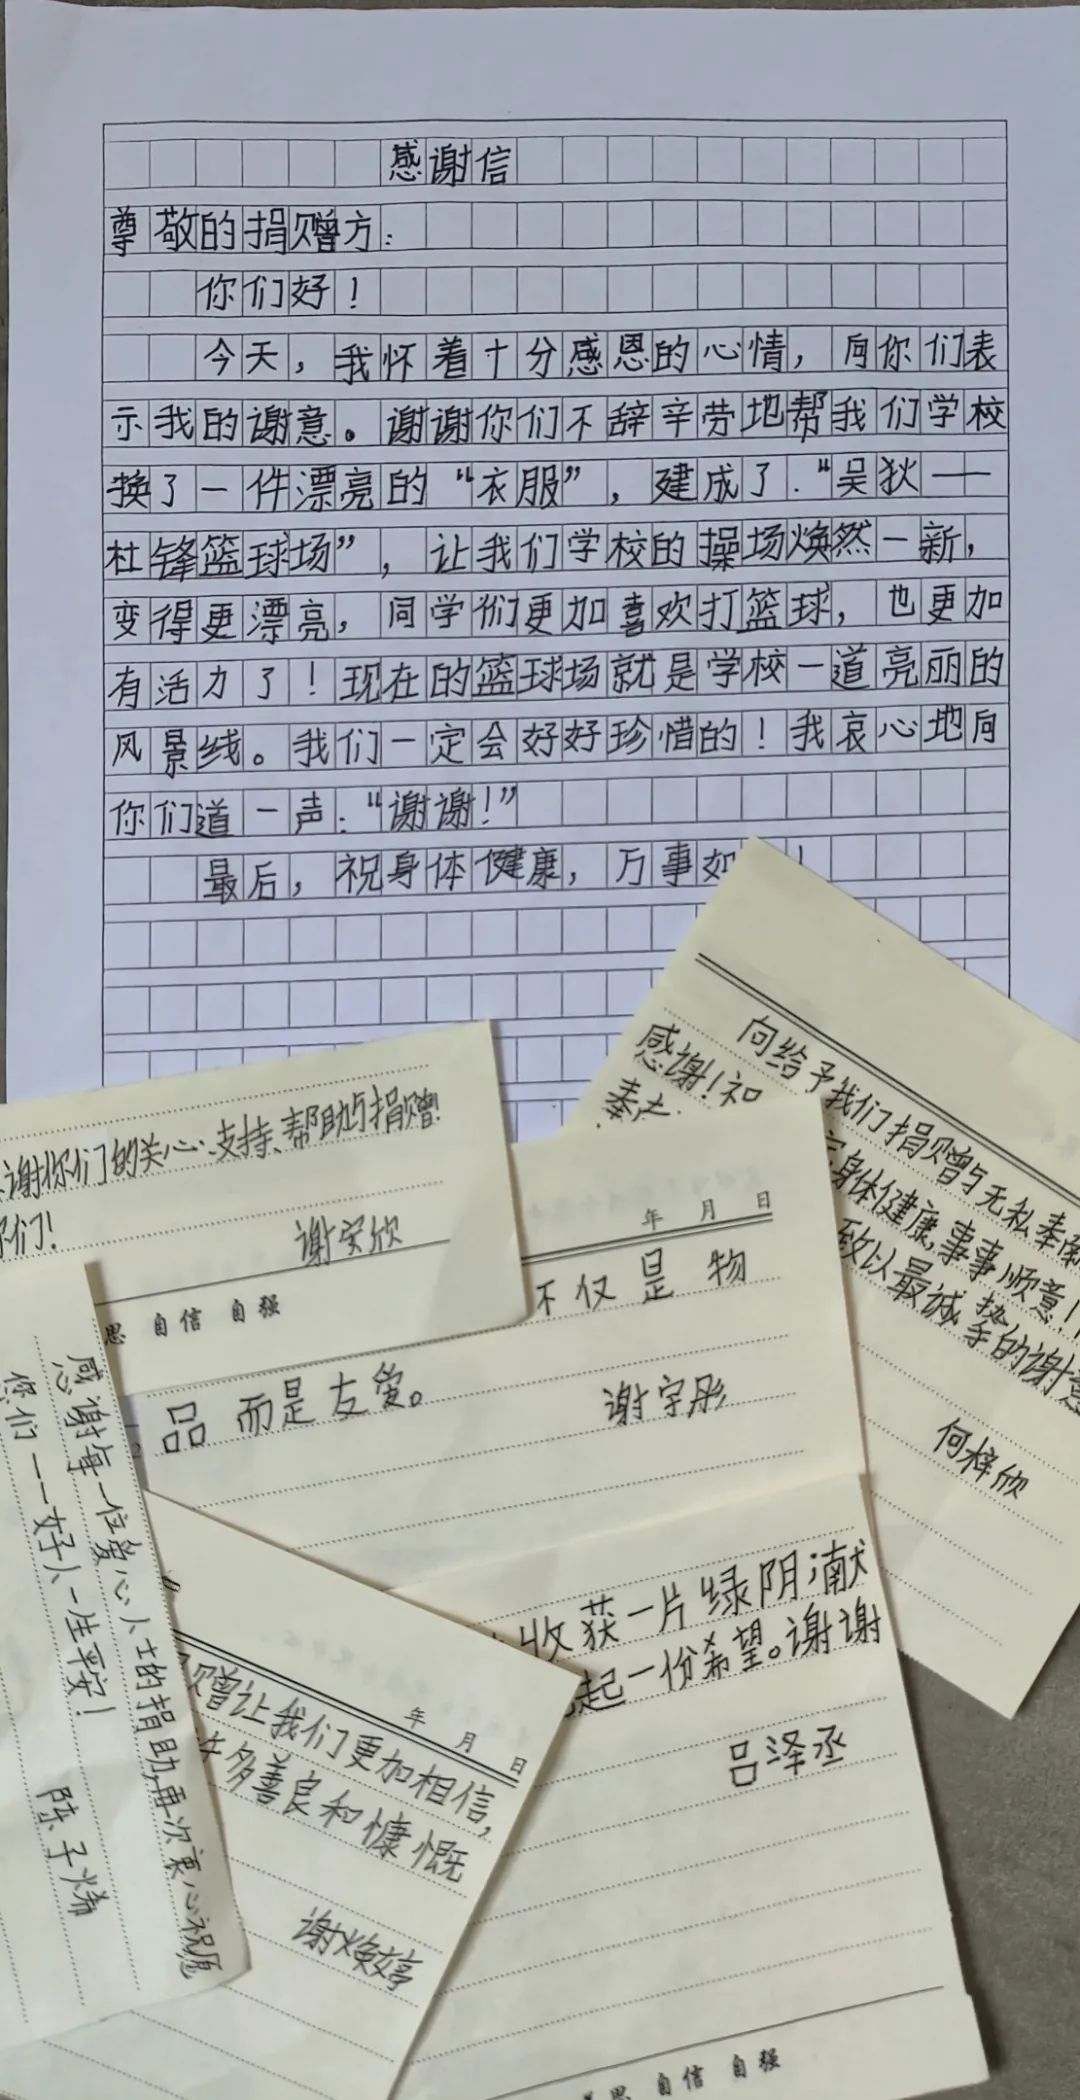 感谢信
尊敬的捐赠方：
你们好！
今天，我怀着十分感恩的心情，向你们表
示我的谢意。谢谢你们不辞辛劳地帮我们学校
换了一件漂亮的“衣服”，建成了“吴狄——
杜锋篮球场”，让我们学校的操场焕然一新，
变得更漂亮，同学们更加喜欢打篮球，也更加
有活力了！现在的篮球场就是学校一道亮丽的
风景线。我们一定会好好珍惜的！我哀心地向
你们道一声：“谢谢！”
最后，祝身体健康，万事如！
向给予我们捐赠与无私奉献
感谢！祝
身体健康，事事顺意！
致以最诚挚的谢意
何梓欣
谢你们的关心、支持、帮助与捐赠！
你们！
谢安欣
思 自信 自强
年 月 日
不仅是物
品而是友爱。
谢宇彤
感谢每一位爱心人士的捐助，再次衷心祝愿
您们一一好人一生平安！
陈子烯
年 月 日
赠让我们更加相信，
许多善良和慷慨
谢焕婷
收获一片绿阴；献
起一份希望。谢谢
吕泽丞
思 自信 自强